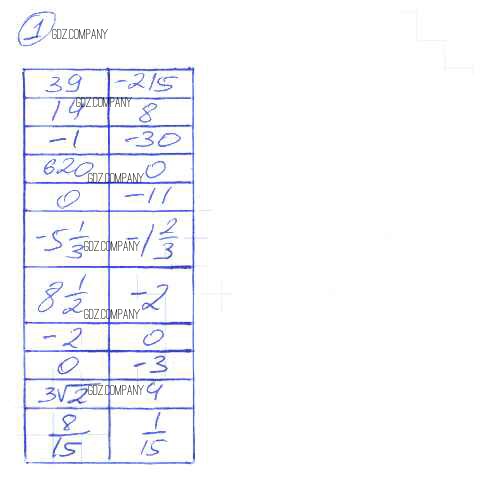 1 GDZ.COMPANY
39 -215
GDZ.COMPANY
14 8
-1 -30
620 0
GDZ.COMPANY
0 -11
-5 1/3 -1 2/3
GDZ.COMPANY
8 1/2 -2
GDZ.COMPANY
-2 0
0 -3
3√2 4
GDZ.COMPANY
8/15 1/15